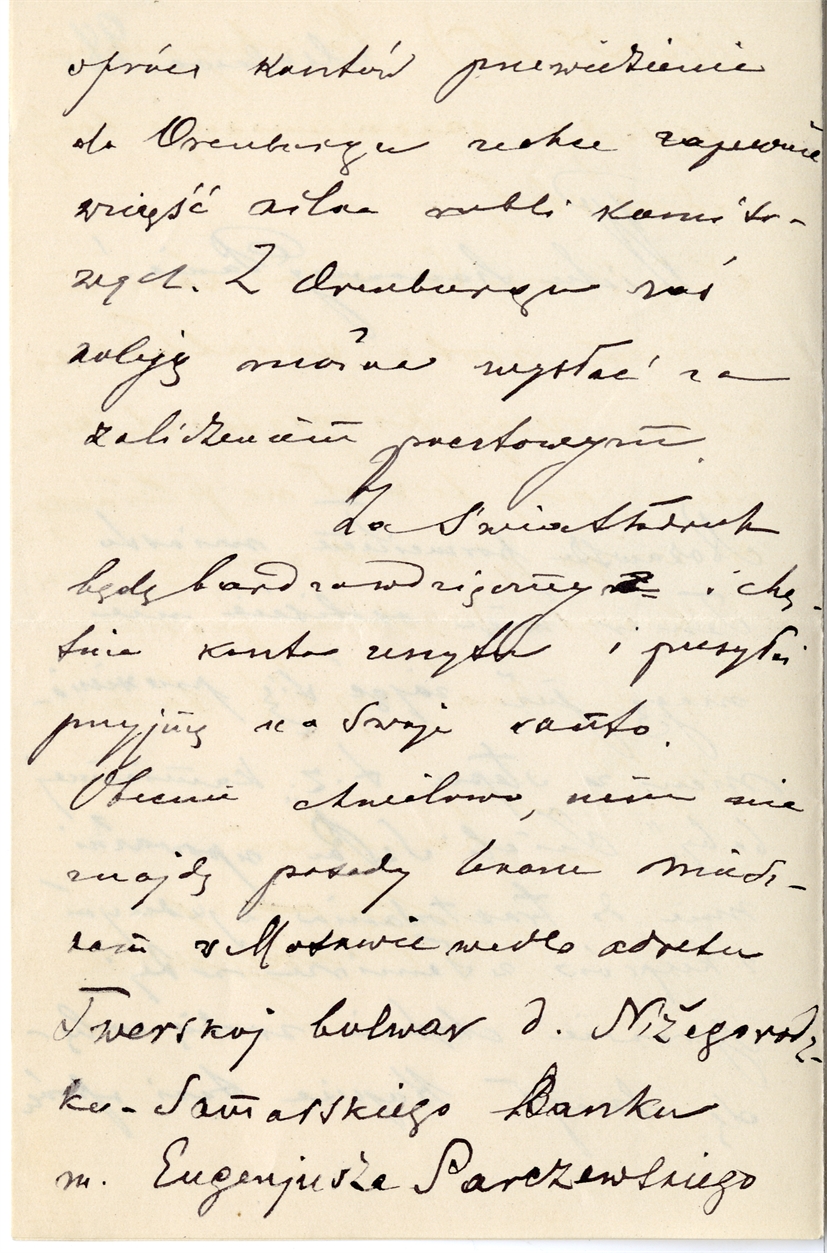 oprócz kosztów przewiezienia
do Orenburga zechce zapewne
wziąść kilka rubli komiso-
wych. Z Orenburga zaś
koleją można wysłać za
zaliczeniem pocztowym.
Za Światłodruk
będę bardzo wdzięczny i chę-
tnie koszta i przesyłki
przyjmę na swoje conto.
Obecnie chwilowo, nim nie
znajdę posady miesz-
kam w Moskwie wedle adresu
Twerskoj bulwar d. Niżegorodz-
ko-Samarskiego Banku
m. Eugenjusza Parczewskiego